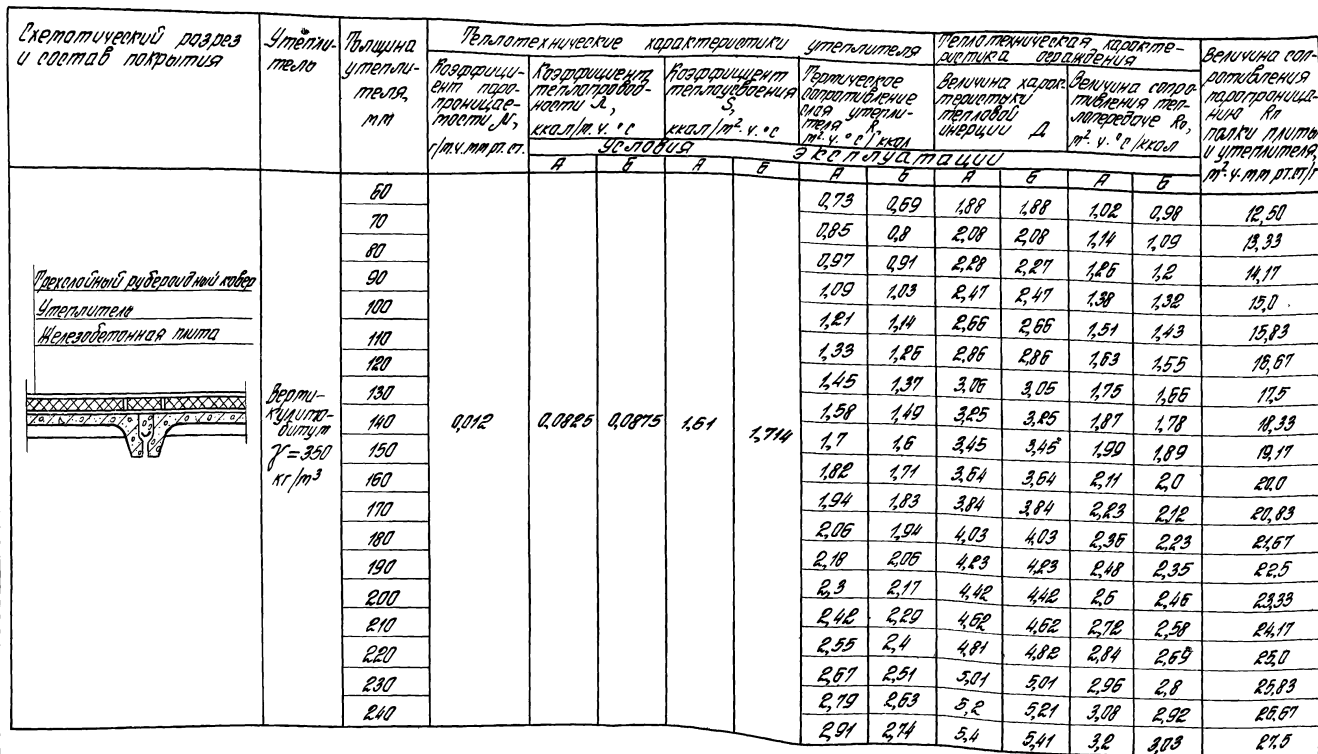 Схематический разрез и состав покрытия
Утепли-
тель
Толщина
утепли-
теля,
мм
Теплотехнические характеристики утеплителя
Коэффици-
ент паро-
проницае-
мости μ,
г/м.ч.мм рт. ст.
Коэффициент
теплопровод-
ности λ,
ккал/м.ч.°с
Коэффициент
теплоусвоения
S,
ккал/м².ч.°с
Термическое
сопротивление
слоя утепли-
теля R,
м².ч.°с/ккал
Теплотехническая характе-
ристика ограждения
Величина харак-
теристики
тепловой
инерции Д
Величина сопро-
тивления теп-
лопередаче Rо,
м².ч.°с/ккал
Величина соп-
ротивления
паропроница-
нию Rп
полки плиты
и утеплителя,
м².ч.мм рт.ст/г
Условия эксплуатации
А Б А Б А Б А Б А Б
Трехслойный рубероидный ковер
Утеплитель
Железобетонная плита
Верми-
кулито-
битум
γ=350
кг/м³
0,012 0,0825 0,0875 1,61 1,714
60 0,73 0,69 1,88 1,88 1,02 0,98 12,50
70 0,85 0,8 2,08 2,08 1,14 1,09 13,33
80 0,97 0,91 2,28 2,27 1,26 1,2 14,17
90 1,09 1,03 2,47 2,47 1,38 1,32 15,0
100 1,21 1,14 2,66 2,66 1,51 1,43 15,83
110 1,33 1,26 2,86 2,86 1,63 1,55 16,67
120 1,45 1,37 3,06 3,05 1,75 1,66 17,5
130 1,58 1,49 3,25 3,25 1,87 1,78 18,33
140 1,7 1,6 3,45 3,45 1,99 1,89 19,17
150 1,82 1,71 3,64 3,64 2,11 2,0 20,0
160 1,94 1,83 3,84 3,84 2,23 2,12 20,83
170 2,06 1,94 4,03 4,03 2,36 2,23 21,67
180 2,18 2,06 4,23 4,23 2,48 2,35 22,5
190 2,3 2,17 4,42 4,42 2,6 2,46 23,33
200 2,42 2,29 4,62 4,62 2,72 2,58 24,17
210 2,55 2,4 4,81 4,82 2,84 2,69 25,0
220 2,67 2,51 5,01 5,01 2,96 2,8 25,83
230 2,79 2,63 5,2 5,21 3,08 2,92 26,67
240 2,91 2,74 5,4 5,41 3,2 3,03 27,5